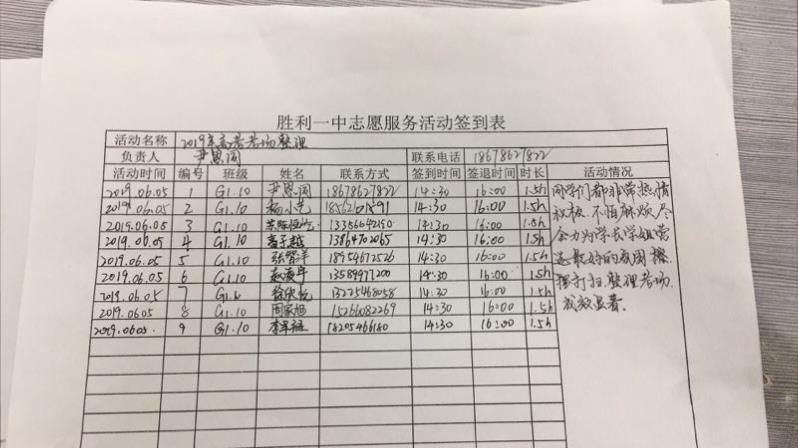 胜利一中志愿服务活动签到表
活动名称 2019年高考考场整理
负责人 尹恩阁 联系电话 18678627822
活动时间 编号 班级 姓名 联系方式 签到时间 签退时间 时长 活动情况
2019.06.05 1 G1.10 尹恩阁 18678627822 14:30 16:00 1.5h
2019.06.05 2 G1.10 14:30 16:00 1.5h
2019.06.05 3 G1.10 14:30 16:00 1.5h
2019.06.05 4 G1.10 13864702065 14:30 16:00 1.5h
2019.06.05 5 G1.10 18954672526 14:30 16:00 1.5h
2019.06.05 6 G1.10 13589977200 14:30 16:00 1.5h
2019.06.05 7 13225468058 14:30 16:00 1.5h
2019.06.05 8 G1.10 周家旭 15266082269 14:30 16:00 1.5h
2019.0605. 9 G1.10 18205466180 14:30 16:00 1.5h
同学们都非常热情
积极、不怕麻烦、尽
全力为学长学姐营
造最好的氛围,擦
打扫,整理考场,
成效显著.